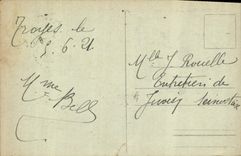 Troyes le
5. 6. 21
Mme Bell
Mlle J. Rouelle
Entretien de
Juvisy